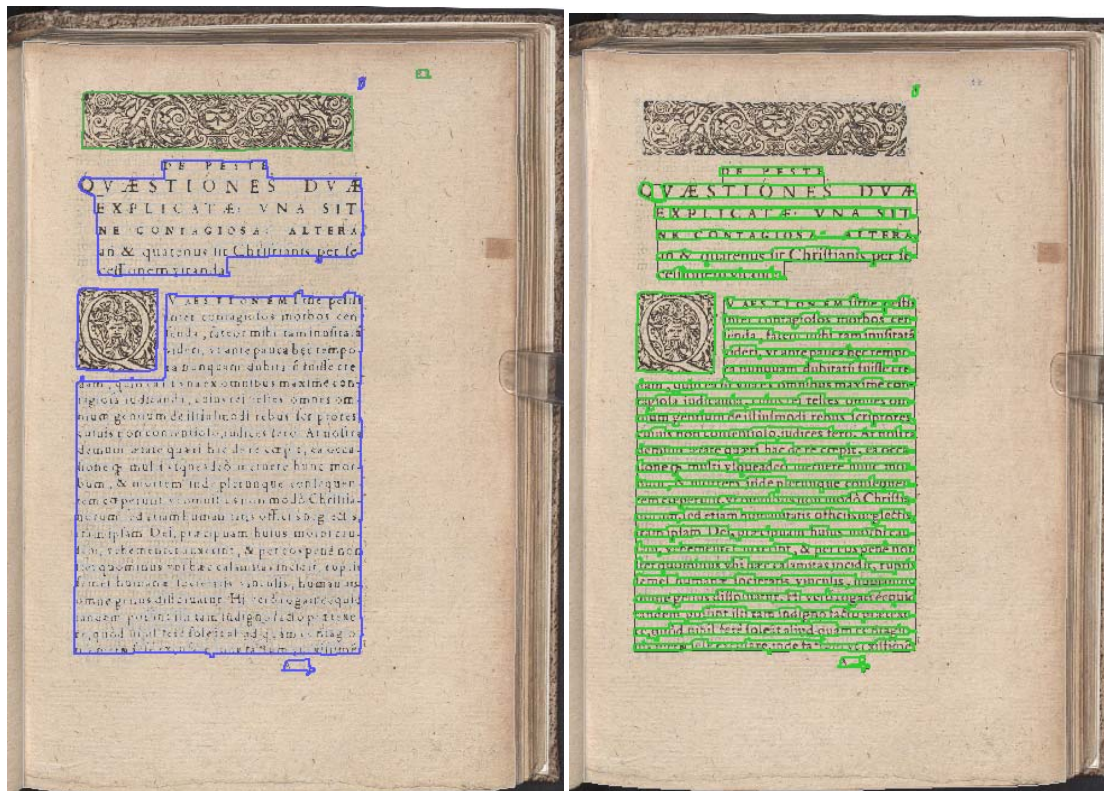 DE PESTE
QVÆSTIONES DVÆ
EXPLICATÆ: VNA SIT
NE CONTAGIOSA: ALTERA
an & quatenus sit Christianis per ſe
ceſſionem vitanda
QVAESTIONEM ſitne peſtis
inter contagioſos morbos cen
ſenda, fateor mihi tam inuſitatã
videri, vt ante pauca hęc tempo
ra nunquam dubitatũ fuiſſe cre
dam, quin ex omnibus maximè con
tagioſa iudicanda,
nium gentium de iſtiuſmodi rebus ſcriptores
non contentioſo, iudices fero. At noſtra
demum ætate quæri hac de re cœpit, ea occa
ſione ꝙ multi
bum, & mortem inde plerunque conſequen
tem
ſed etiam humanitatis officiis neglectis,
iram ipſam Dei, præcipuam huius morbi cau
ſam, vehementer auxerint, & per eos penè non
ſtet quominus vbi hæc calamitas incidit, ruptis
ſemel humanæ ſocietatis vinculis, humanum
omne genus diſſoluatur. Hi verò rogati ecquid
tandem poſſint iſti tam indigno facto
re, quòd nihil ferè ſolent aliud quàm contagio
A
DE PESTE
QVÆSTIONES DVÆ
EXPLICATÆ: VNA SIT
NE CONTAGIOSA: ALTERA
an & quatenus ſit Chriſtianis per ſe
ceſſionem
QVAESTIONEM ſitne peſtis
inter contagioſos morbos cen
ſenda, fateor mihi tam inuſitatã
videri, vt ante pauca hęc tempo
ra nunquam dubitatũ fuiſſe cre
dam, quin ex omnibus maximè con
tagioſa iudicanda, teſtes omnes om
nium gentium de iſtiuſmodi rebus ſcriptores
non contentioſo, iudices fero. At noſtra
demum ætate quæri hac de re cœpit, ea occa
ſione ꝙ multi
bum, & mortem inde plerunque conſequen
tem non modò Chriſtia
ſed etiam humanitatis officiis neglectis
iram ipſam Dei, præcipuam huius morbi cau
ſam, vehementer auxerint, & per eos penè non
ſtet quominus vbi hæc calamitas incidit, ruptis
ſemel humanæ ſocietatis vinculis, humanum
omne genus diſſoluatur. Hi verò rogati ecquid
tandem poſſint iſti tam indigno facto
re, quòd nihil ferè ſolent aliud quàm contagio
A